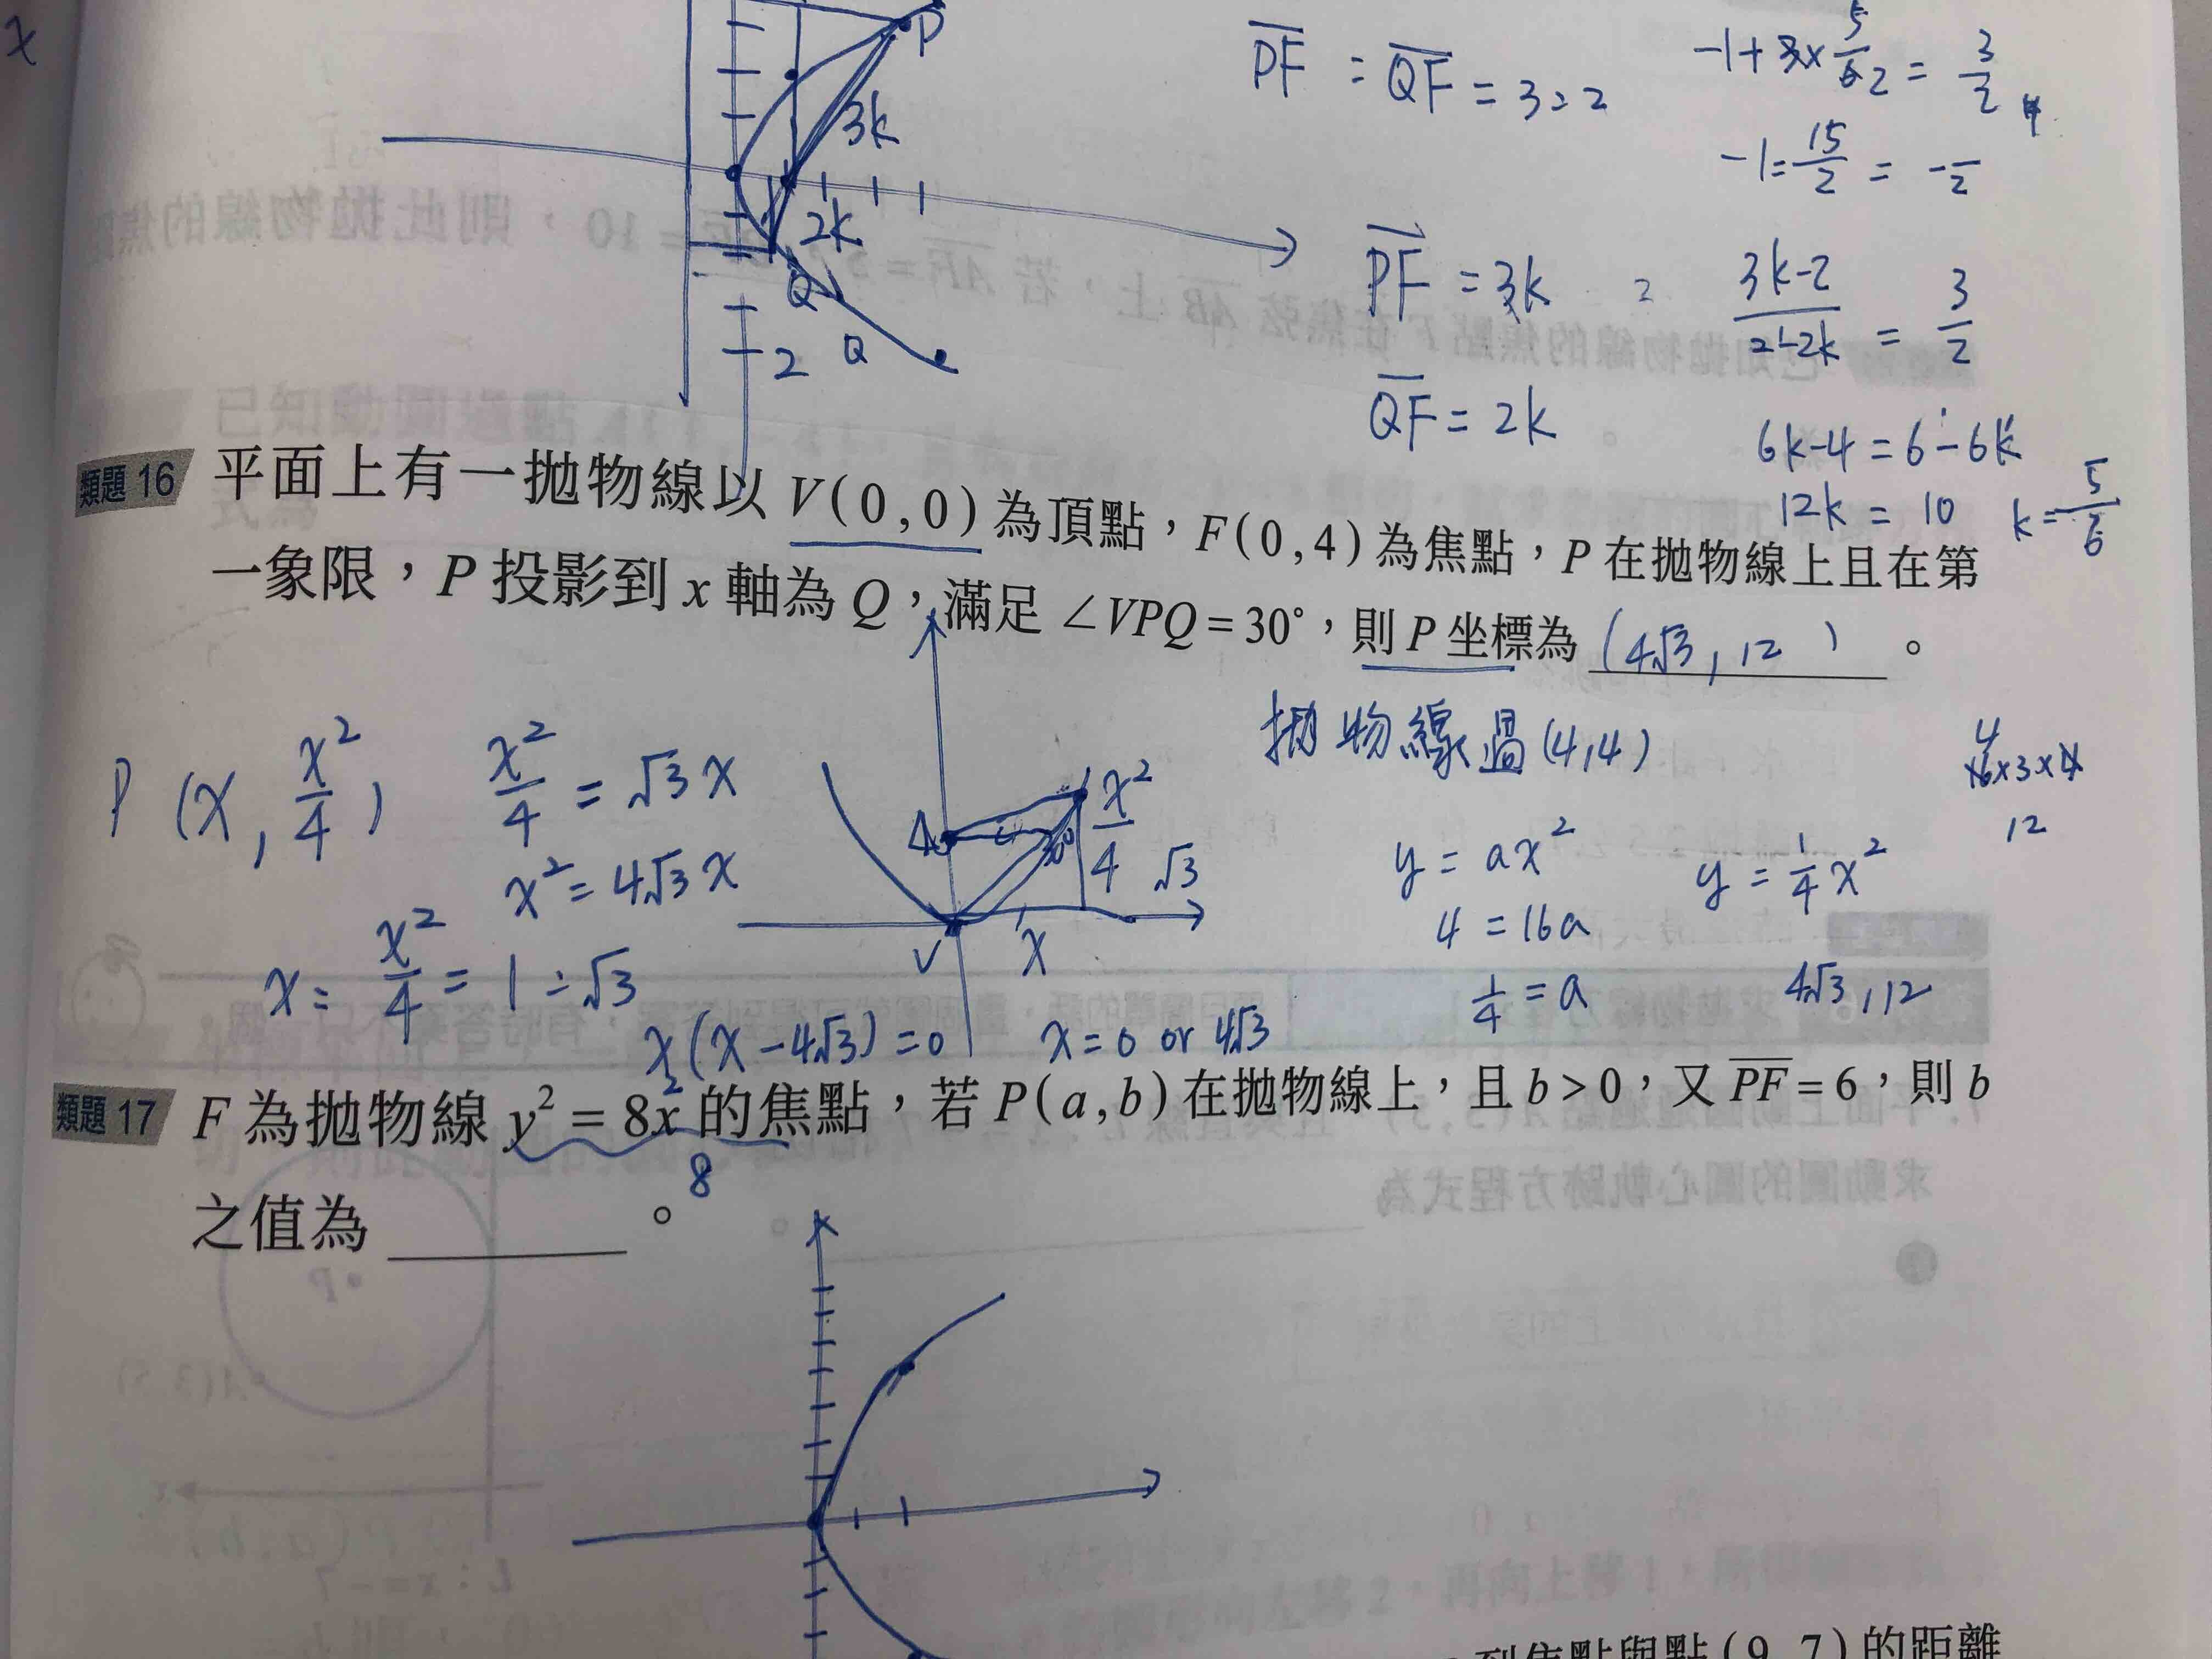 x
P
3k
2k
Q
Q
2
PF : QF = 3:2
PF = 3k
QF = 2k
3k-2
2-2k
= 3/2
6k-4 = 6-6k
12k = 10
k = 5/6
類題 16 平面上有一拋物線以 V(0,0) 為頂點，F(0,4) 為焦點，P 在拋物線上且在第
一象限，P 投影到 x 軸為 Q，滿足 ∠VPQ = 30°，則 P 坐標為 (4√3, 12)。
P (x, x²/4)
x²/4 = √3x
x² = 4√3x
x : x²/4 = 1 : √3
x(x-4√3) = 0
x = 0 or 4√3
x²/4
√3
30°
V
x
拋物線過(4,4)
y = ax²
4 = 16a
1/4 = a
y = 1/4 x²
4√3, 12
12
類題 17 F 為拋物線 y² = 8x 的焦點，若 P(a,b) 在拋物線上，且 b > 0，又 PF = 6，則 b
8
之值為 ________。
到焦點與點(9,7)的距離